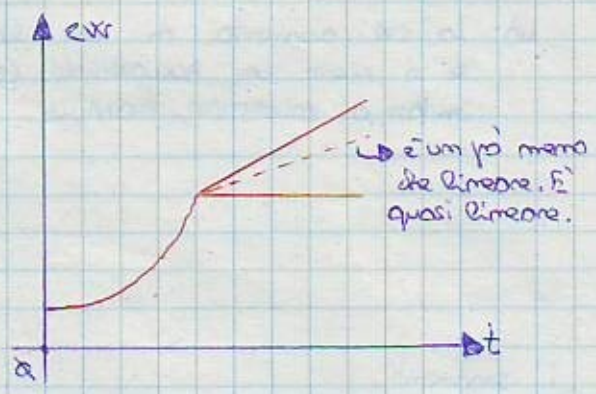 err
è un pò meno
che lineare. È
quasi lineare.
t